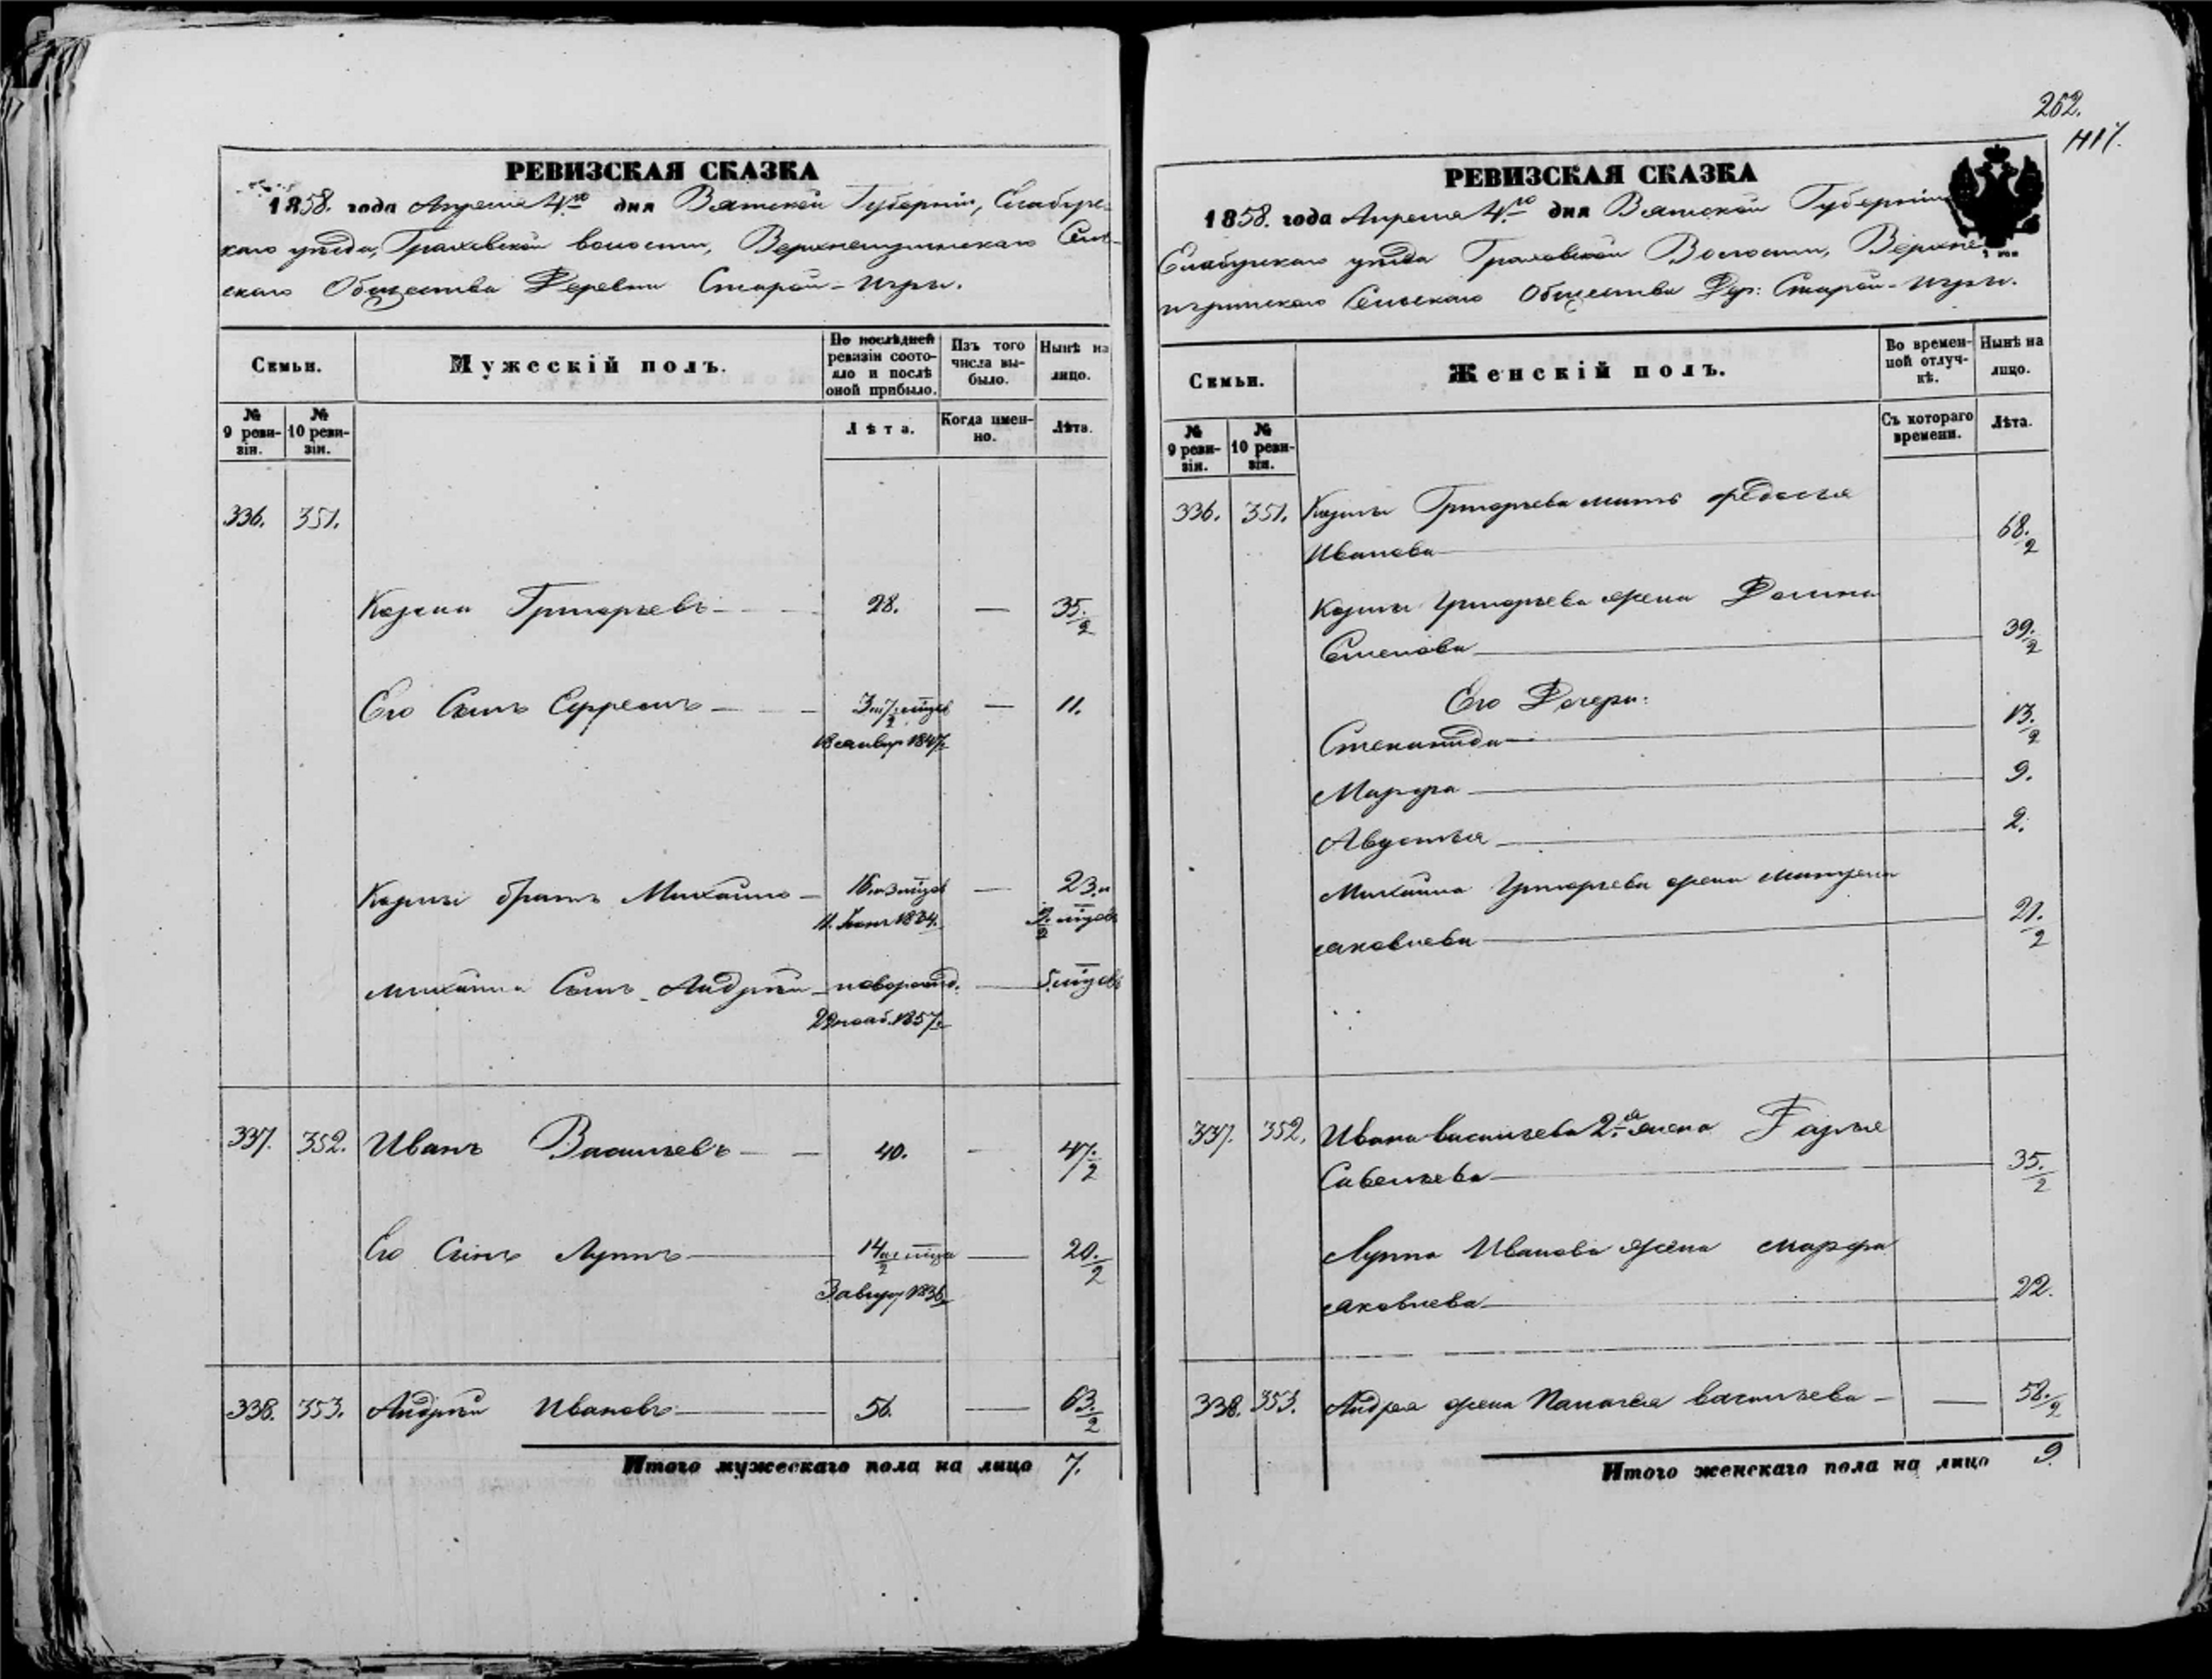 РЕВИЗСКАЯ СКАЗКА
1858. года Апреля 4го дня Вятской Губерніи, Елабужс-
каго уѣзда, Граховской волости, Верхнеигринскаго Сель-
скаго Общества Деревни Старой-Игры.
Семьи.
Мужескій полъ.
По послѣдней ревизіи состояло и послѣ оной прибыло.
Изъ того числа выбыло.
Нынѣ на лицо.
№ 9 ревизіи.
№ 10 ревизіи.
Лѣта.
Когда именно.
Лѣта.
336. 351.
Козма Григорьевъ 28. — 35. 1/2
Его Сынъ Ефремъ — 11.
18 Январ 1847
Козмы братъ Михайло — 23. и
11. 1834.
Михайла Сынъ Андрей новорожд. — 5 мѣсyцовъ
29 нояб. 1857
337. 352. Иванъ Васильевъ 40. — 47. 1/2
Его Сынъ Луппъ 14 — 20. 1/2
3 август 1836
338. 353. Андрей Ивановъ 56. — 63. 1/2
Итого мужескаго пола на лицо 7.
262.
РЕВИЗСКАЯ СКАЗКА
1858. года Апреля 4го дня Вятской Губерніи
Елабужскаго уѣзда Граховской Волости, Верхне
игринскаго Сельскаго Общества Дер: Старой-Игры.
Семьи.
Женскій полъ.
Во временной отлучкѣ.
Нынѣ на лицо.
№ 9 ревизіи.
№ 10 ревизіи.
Съ котораго времени.
Лѣта.
336. 351. Козмы Григорьева мать Федосья
Иванова 68. 1/2
Козмы Григорьева жена Домна
Семенова 39. 1/2
Его Дочери:
Степанида 13. 1/2
Марфа 9.
Августья 2.
Михайла Григорьева жена Матрена
Яковлева 21. 1/2
337. 352. Ивана Васильева 2я жена Дарья
Савельева 35. 1/2
Луппа Иванова жена Марфа
Яковлева 22.
338. 353. Андрея жена Палагея Васильева — 58. 1/2
Итого женскаго пола на лицо 9.